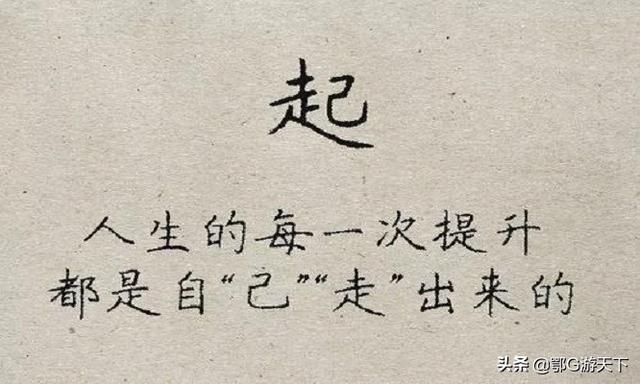 起
人生的每一次提升
都是自“己”“走”出来的
头条 @鄂G游天下